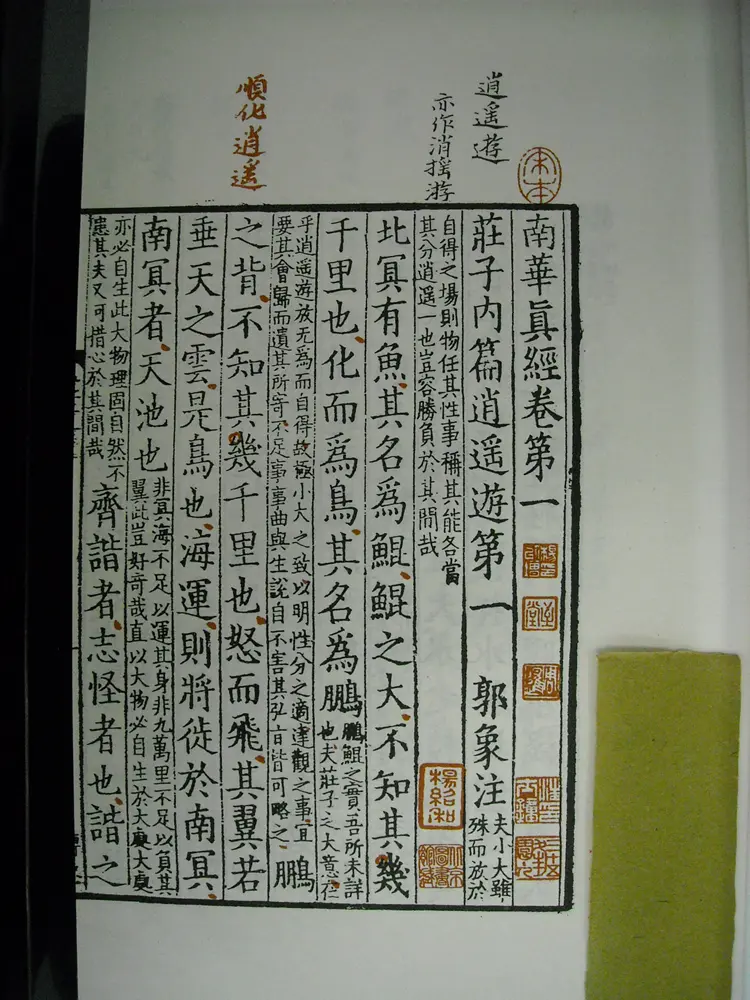 宋本
逍遥遊
亦作消摇游
順化逍遥
南華眞經卷第一
莊子内篇逍遥遊第一 郭象注 夫小大雖
殊而放於
自得之場則物任其性事稱其能各當
其分逍遥一也豈容勝負於其間哉
楊紹和
北冥有魚其名爲鯤鯤之大不知其幾
千里也化而爲鳥其名爲鵬 鵬鯤之實吾所未詳
也夫莊子之大意在
乎逍遥遊放无爲而自得故極小大之致以明性分之適達觀之事宜
要其會歸而遺其所寄不足事事曲與生說自不害其弘旨皆可略之 鵬
之背不知其幾千里也怒而飛其翼若
垂天之雲是鳥也海運則將徙於南冥
南冥者天池也 非冥海不足以運其身非九萬里不足以負其
翼此豈好奇哉直以大物必自生於大處大處
亦必自生此大物理固自然不
患其失又可措心於其間哉 齊諧者志怪者也諧之